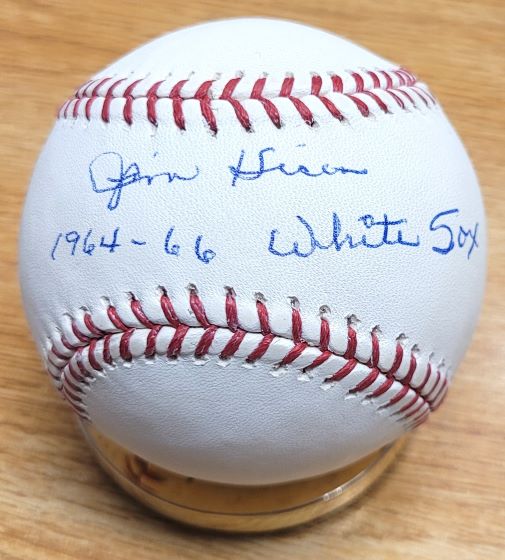 Jim Hicks
1964-66 White Sox